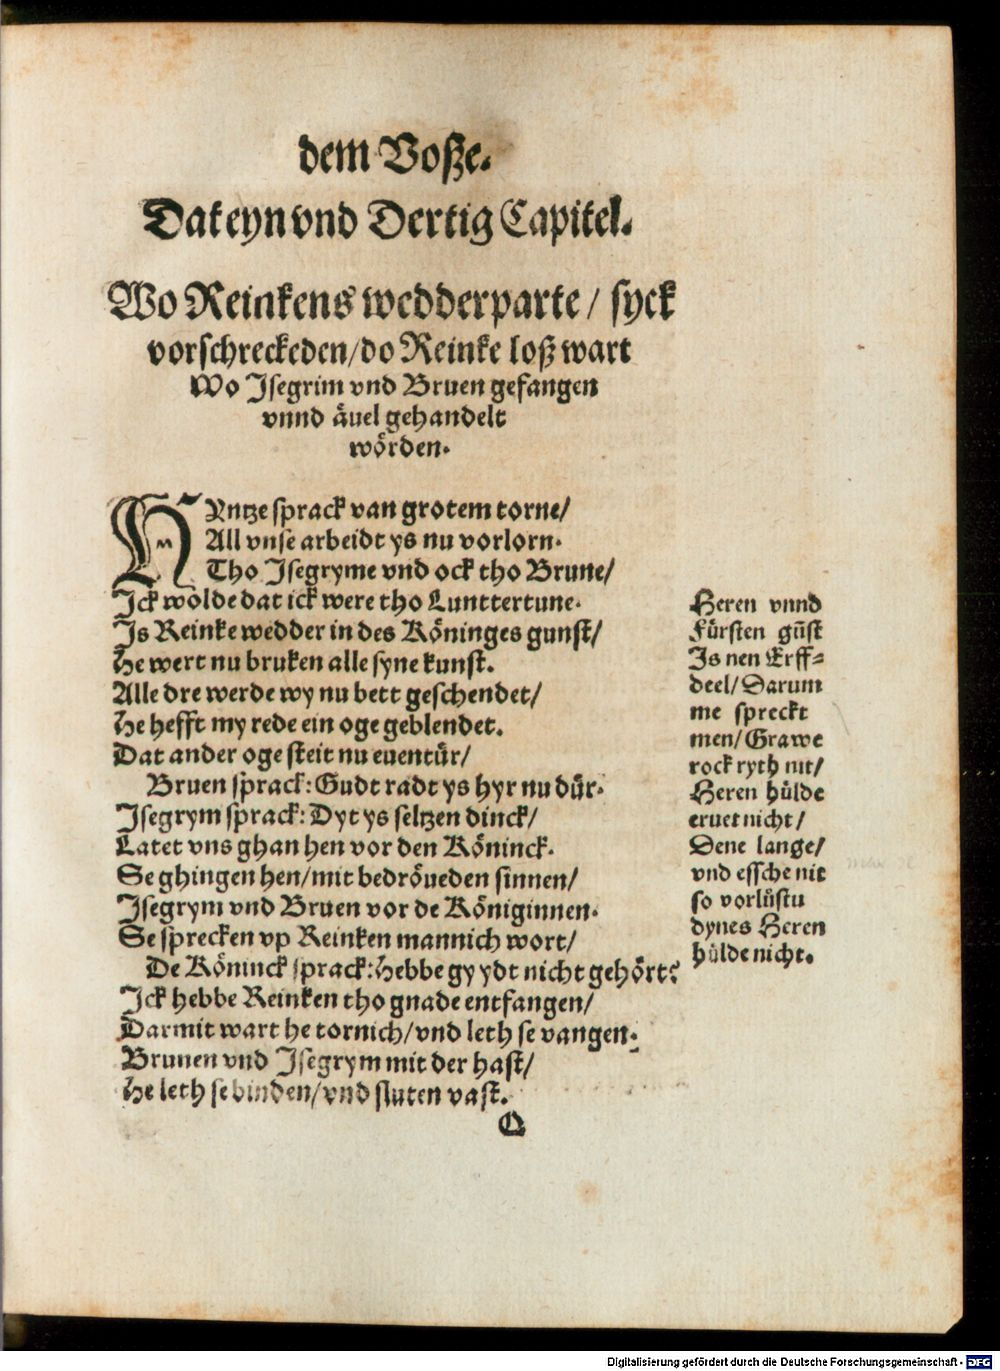 dem Voßze.
Dat eyn vnd Dertig Capitel.
Wo Reinkens wedderparte / syck
vorschreckeden/do Reinke loß wart
Wo Isegrim vnd Bruen gefangen
vnnd ävel gehandelt
wörden.
HYntze sprack van grotem torne/
All vnse arbeidt ys nu vorlorn.
Tho Isegryme vnd ock tho Brune/
Ick wolde dat ick were tho Lunttertune.
Is Reinke wedder in des Köninges gunst/
He wert nu bruken alle syne kunst.
Alle dre werde wy nu bett geschendet/
He hefft my rede ein oge geblendet.
Dat ander oge steit nu euentür/
Bruen sprack: Gudt radt ys hyr nu dür.
Isegrym sprack: Dyt ys seltzen dinck/
Latet vns ghan hen vor den Köninck.
Se ghingen hen/mit bedröueden sinnen/
Isegrym vnd Bruen vor de Königinnen.
Se sprecken vp Reinken mannich wort/
De Köninck sprack: Hebbe gy ydt nicht gehört?
Ick hebbe Reinken tho gnade entfangen/
Darmit wart he tornich/vnd leth se vangen.
Brunen vnd Isegrym mit der hast/
He leth se binden/vnd sluten vast.
Q
Heren vnnd
Fürsten gūst
Is nen Erff=
deel/Darum
me spreckt
men/Grawe
rock ryth nit/
Heren hülde
eruet nicht/
Dene lange/
vnd essche nit
so vorlüstu
dynes Heren
hülde nicht.
Digitalisierung gefördert durch die Deutsche Forschungsgemeinschaft - DFG